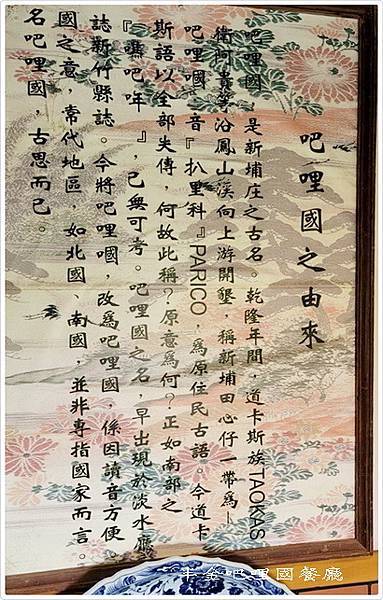 吧哩國之由來
吧哩國，是新埔庄之古名。乾隆年間，道卡斯族TAOKAS
衛阿貴等沿鳳山溪向上游開墾，稱新埔田心仔一帶為—
吧哩嘓，音『扒里科』PARICO，為原住民古語。今道卡
斯語以全部失傳，何故此稱？原意為何？正如南部之
『噍吧哖』，已無可考。吧哩嘓之名，早出現於淡水廳
誌新竹縣誌。今將吧哩嘓，改為吧哩國，係因讀音方便。
國之意，常代地區，如北國、南國，並非專指國家而言。
名吧哩國，古思而已。
吧哩國餐廳